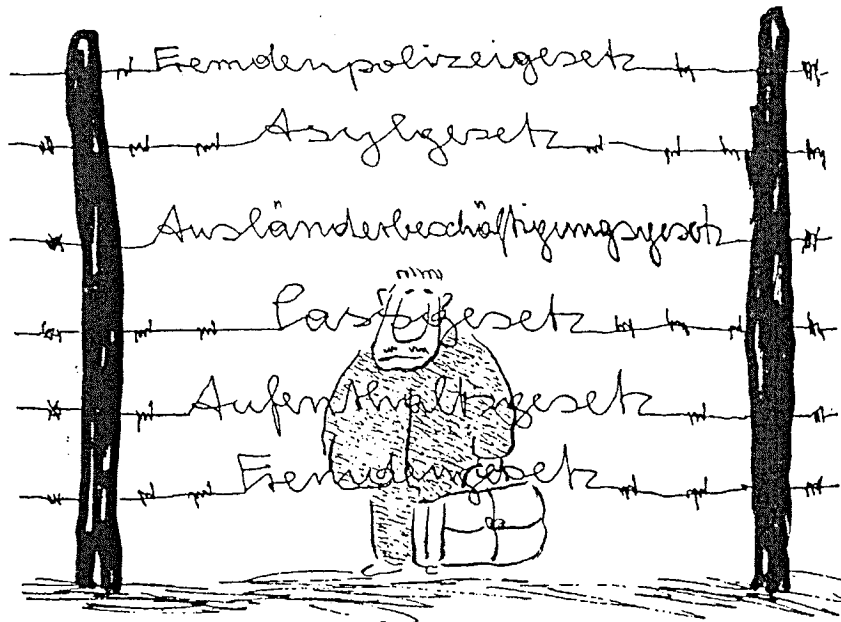 Fremdenpolizeigesetz
Asylgesetz
Ausländerbeschäftigungsgesetz
Passgesetz
Aufenthaltsgesetz
Fremdengesetz